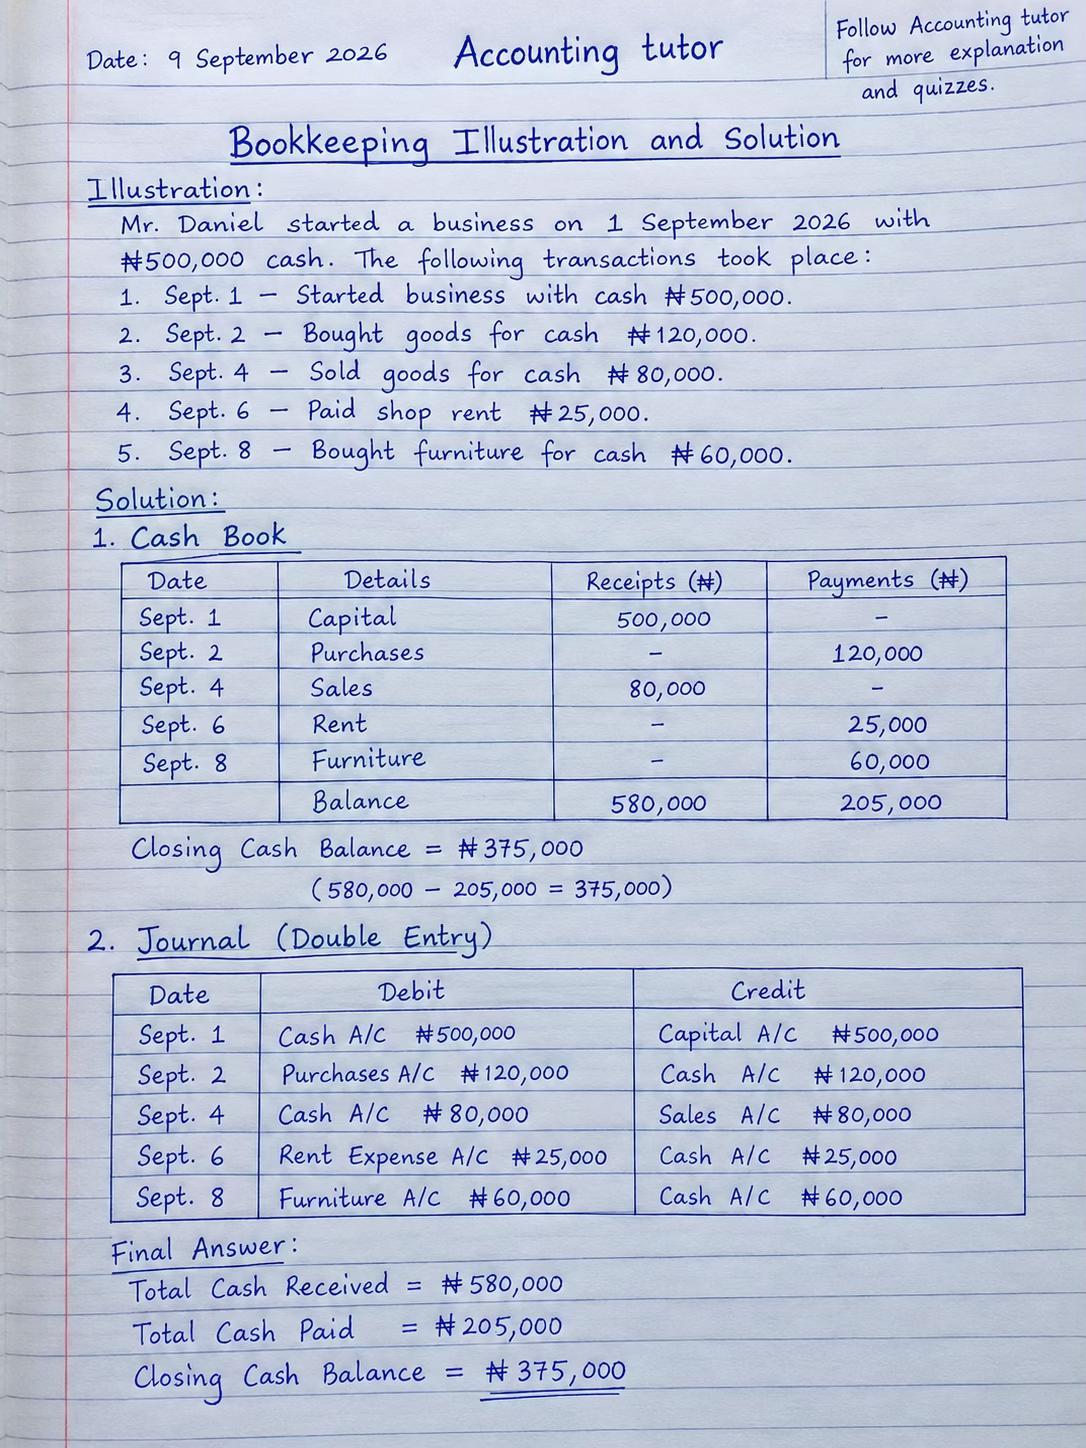 Date: 9 September 2026
Accounting tutor
Follow Accounting tutor
for more explanation
and quizzes.
Bookkeeping Illustration and Solution
Illustration:
Mr. Daniel started a business on 1 September 2026 with
₦500,000 cash. The following transactions took place:
1. Sept. 1 – Started business with cash ₦500,000.
2. Sept. 2 – Bought goods for cash ₦120,000.
3. Sept. 4 – Sold goods for cash ₦80,000.
4. Sept. 6 – Paid shop rent ₦25,000.
5. Sept. 8 – Bought furniture for cash ₦60,000.
Solution:
1. Cash Book
Date Details Receipts (₦) Payments (₦)
Sept. 1 Capital 500,000 –
Sept. 2 Purchases – 120,000
Sept. 4 Sales 80,000 –
Sept. 6 Rent – 25,000
Sept. 8 Furniture – 60,000
Balance 580,000 205,000
Closing Cash Balance = ₦375,000
(580,000 – 205,000 = 375,000)
2. Journal (Double Entry)
Date Debit Credit
Sept. 1 Cash A/C ₦500,000 Capital A/C ₦500,000
Sept. 2 Purchases A/C ₦120,000 Cash A/C ₦120,000
Sept. 4 Cash A/C ₦80,000 Sales A/C ₦80,000
Sept. 6 Rent Expense A/C ₦25,000 Cash A/C ₦25,000
Sept. 8 Furniture A/C ₦60,000 Cash A/C ₦60,000
Final Answer:
Total Cash Received = ₦580,000
Total Cash Paid = ₦205,000
Closing Cash Balance = ₦375,000